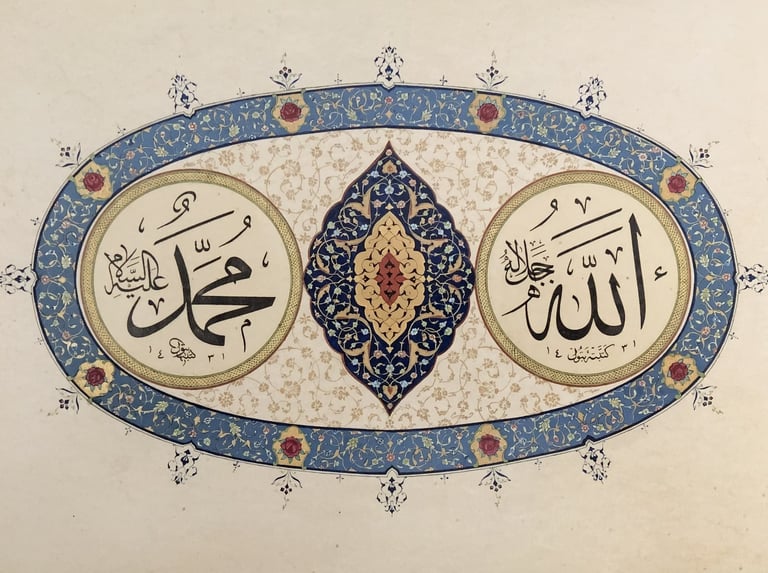 الله
جل جلاله
كتبته بتول
١٤٣١
محمد
عليه السلام
١٤٣١